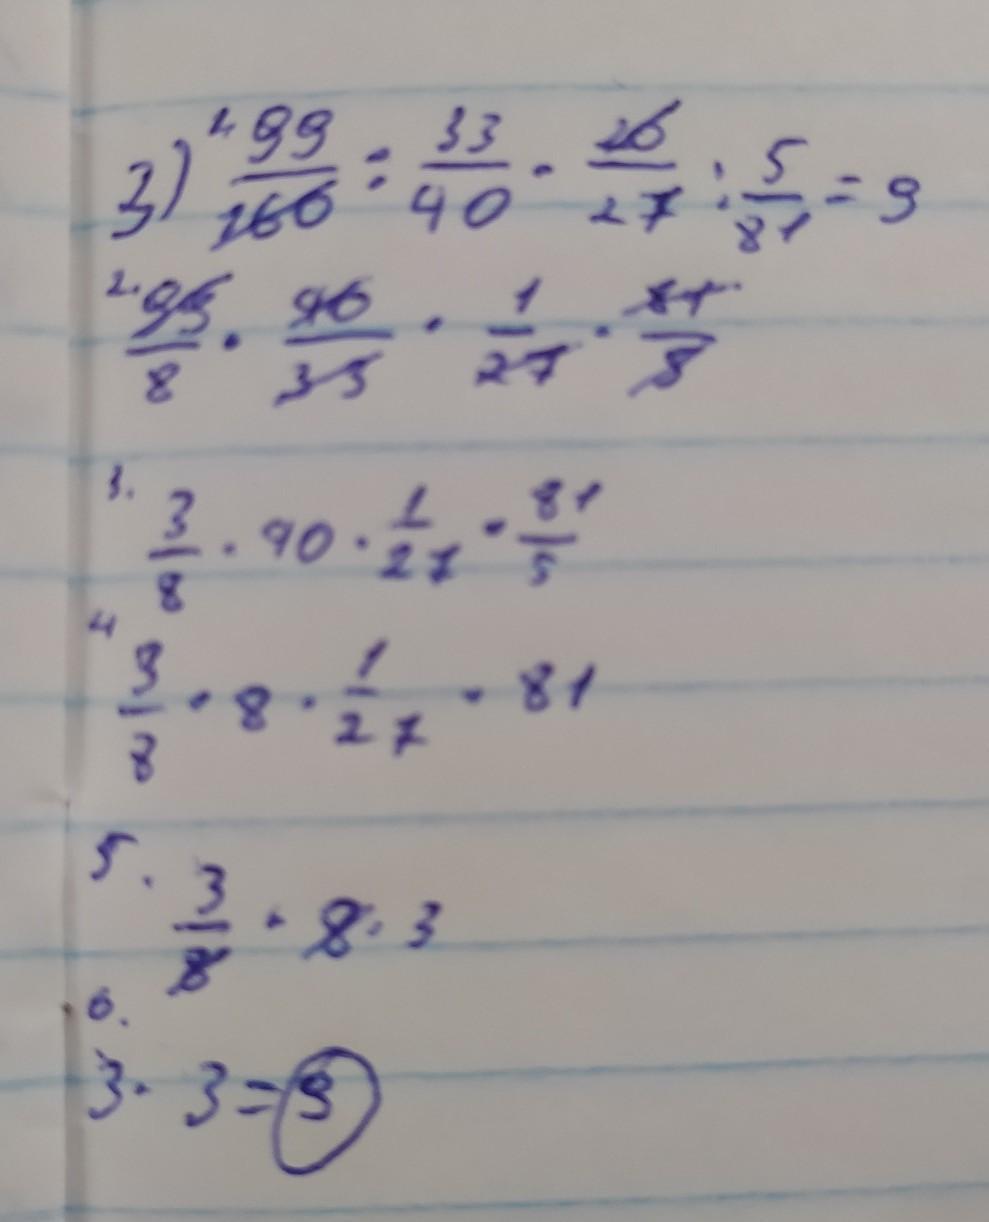 3) 1. 99/160 : 33/40 · 26/27 : 5/81 = 9
2. 99/8 · 40/33 · 1/27 · 81/5
3. 3/8 · 40 · 1/27 · 81/5
4 3/8 · 8 · 1/27 · 81
5. 3/8 · 8 · 3
6.
3 · 3 = 9